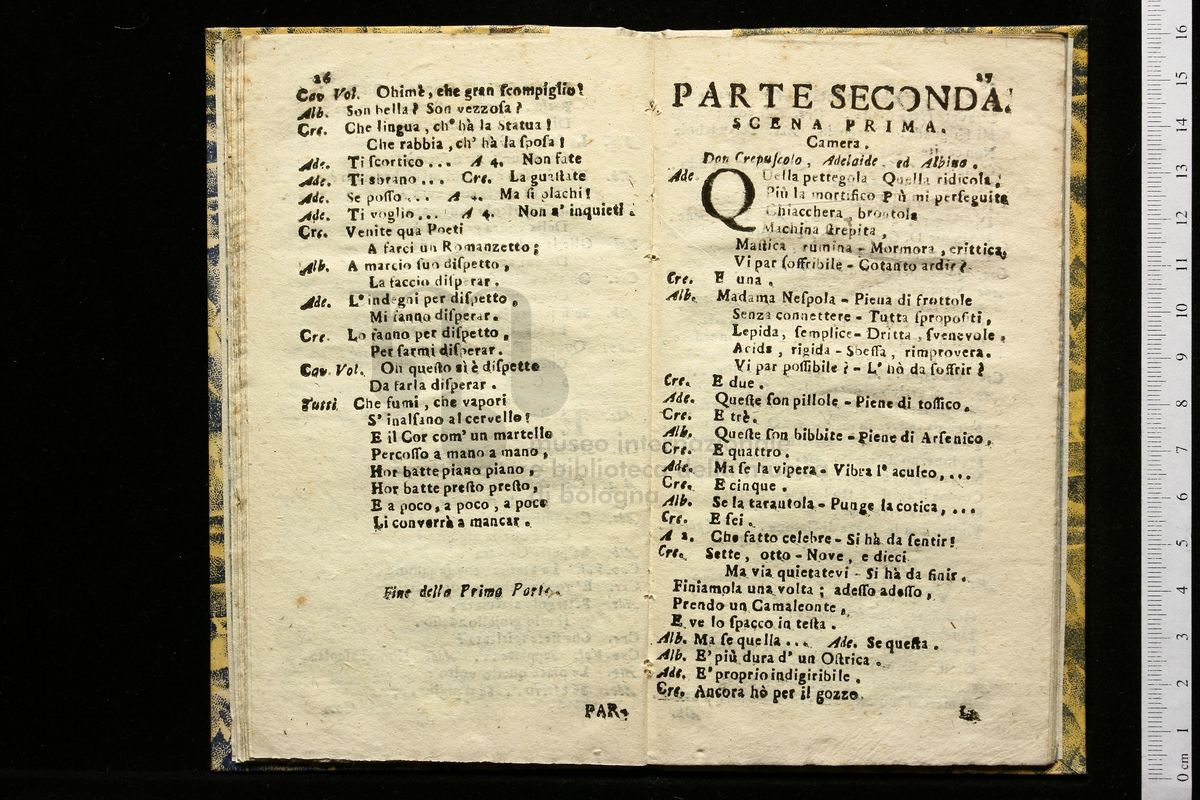 26
Cav Vol. Ohimè, che gran ſcompiglio!
Alb. Son bella? Son vezzoſa?
Cre. Che lingua, ch' hà la Statua!
Che rabbia, ch' hà la ſpoſa!
Ade. Ti ſcortico... A 4. Non fate
Ade. Ti sbrano... Cre. La guaſtate
Ade. Se poſſo... A 4. Ma ſi plachi!
Ade. Ti voglio... A 4. Non s' inquieti.
Cre. Venite qua Poeti
A farci un Romanzetto;
Alb. A marcio ſuo diſpetto,
La faccio diſperar.
Ade. L' indegni per diſpetto,
Mi fanno diſperar.
Cre. Lo fanno per diſpetto,
Per farmi diſperar.
Cav. Vol. Oh queſto sì è diſpetto
Da farla diſperar.
Tutti Che fumi, che vapori
S' inalſano al cervello!
E il Cor com' un martello
Percoſſo a mano a mano,
Hor batte piano piano,
Hor batte preſto preſto,
E a poco, a poco, a poco
Li converrà a mancar.
Fine della Prima Parte.
PAR-
27
PARTE SECONDA.
SCENA PRIMA.
Camera.
Don Crepuſcolo, Adelaide, ed Albina.
Ade QUella pettegola - Quella ridicola,
Più la mortifico Più mi perſeguita
Chiacchera, brontola
Machina ſtrepita,
Maſtica, rumina - Mormora, crittica,
Vi par ſoffribile - Cotanto ardir?
Cre. E una.
Alb. Madama Neſpola - Piena di frottole
Senza connettere - Tutta ſpropoſiti,
Lepida, ſemplice - Dritta, ſvenevole,
Acida, rigida - Sbeffa, rimprovera.
Vi par poſſibile? - L' hò da ſoffrir?
Cre. E due.
Ade. Queſte ſon pillole - Piene di toſſico.
Cre. E trè.
Alb. Queſte ſon bibbite - Piene di Arſenico,
Cre. E quattro.
Ade. Ma ſe la vipera - Vibra l' aculeo,...
Cre. E cinque.
Alb. Se la tarautola - Punge la cotica,...
Cre. E ſei.
A 2. Che fatto celebre - Si hà da ſentir!
Cre. Sette, otto - Nove, e dieci
Ma via quietatevi - Si hà da finir.
Finiamola una volta; adeſſo adeſſo,
Prendo un Camaleonte,
E ve lo ſpacco in teſta.
Alb. Ma ſe quella... Ade. Se queſta.
Alb. E' più dura d' un Oſtrica.
Ade. E' proprio indigiribile.
Cre. Ancora hò per il gozzo
La
museo internazionale
e biblioteca della
di bologna
0 cm 1 2 3 4 5 6 7 8 9 10 11 12 13 14 15 16